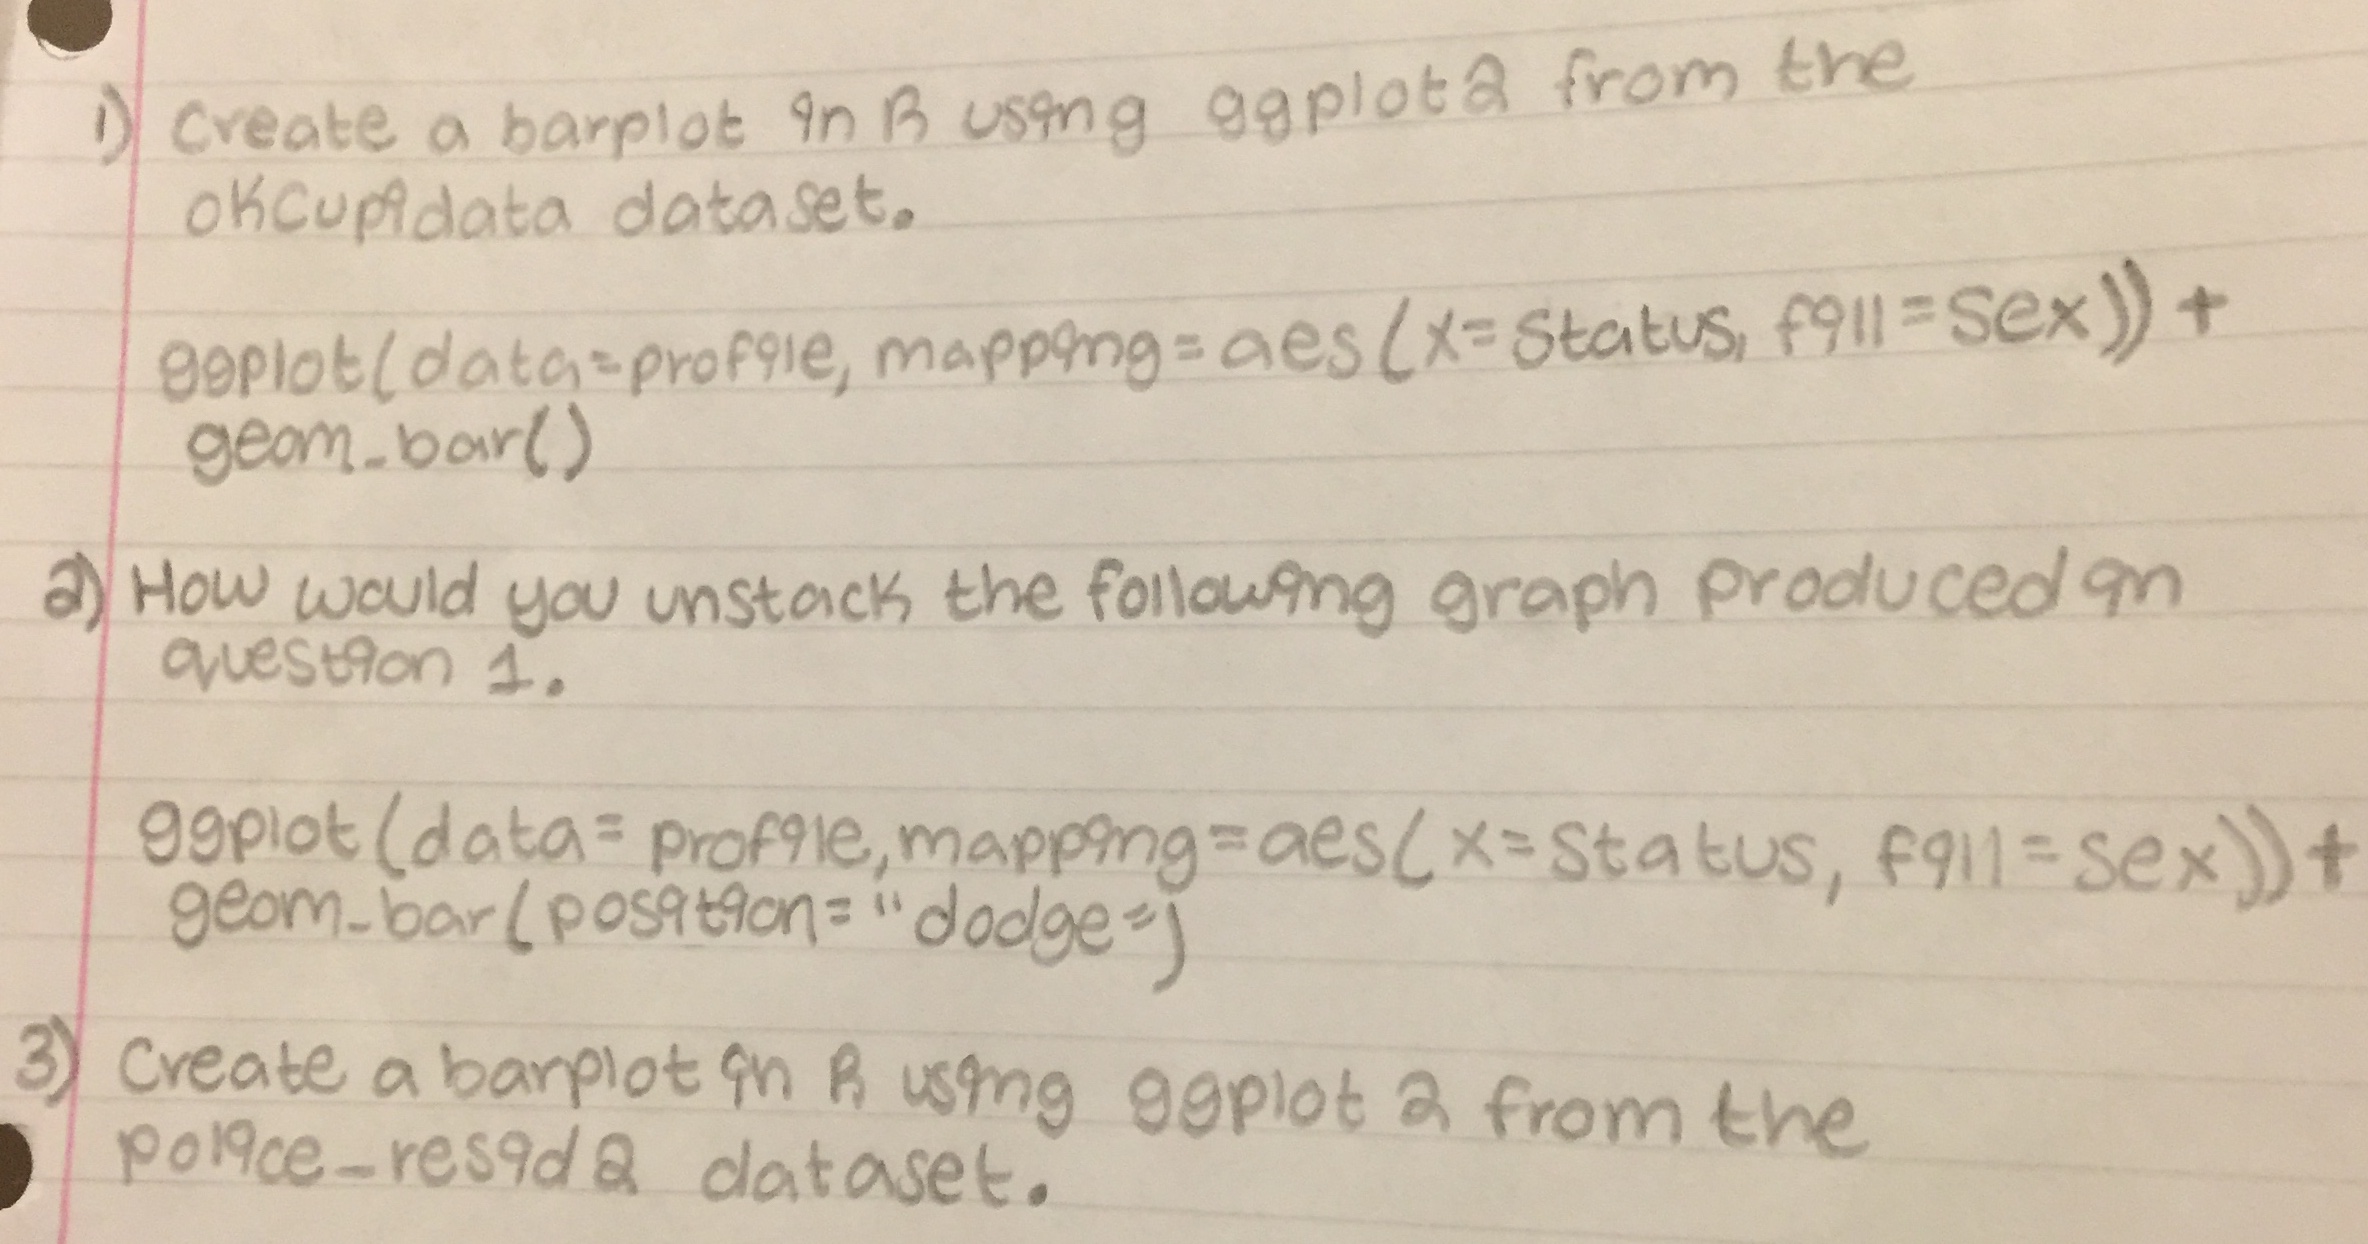 1) Create a barplot in R using ggplot2 from the
okCupidata dataset.
ggplot(data=profile, mapping=aes(x=Status, fill=sex)) +
geom_bar()
2) How would you unstack the following graph produced in
question 1.
ggplot(data=profile, mapping=aes(x=Status, fill=sex)) +
geom_bar(position="dodge")
3) Create a barplot in R using ggplot 2 from the
police_resid2 dataset.